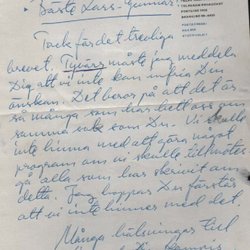 Bäste Lars-Gunnar
Tack för det trevliga
brevet. Tyvärr måste jag meddela
Dig att vi inte kan infria Din
önskan. Det beror på att det är
så många som har bett oss om
samma sak som Du. Vi skulle
inte hinna med att göra något
program om vi skulle tillmötes
gå alla som har skrivit om
detta. Jag hoppas Du förstår
att vi inte hinner med det.
Många hälsningar till